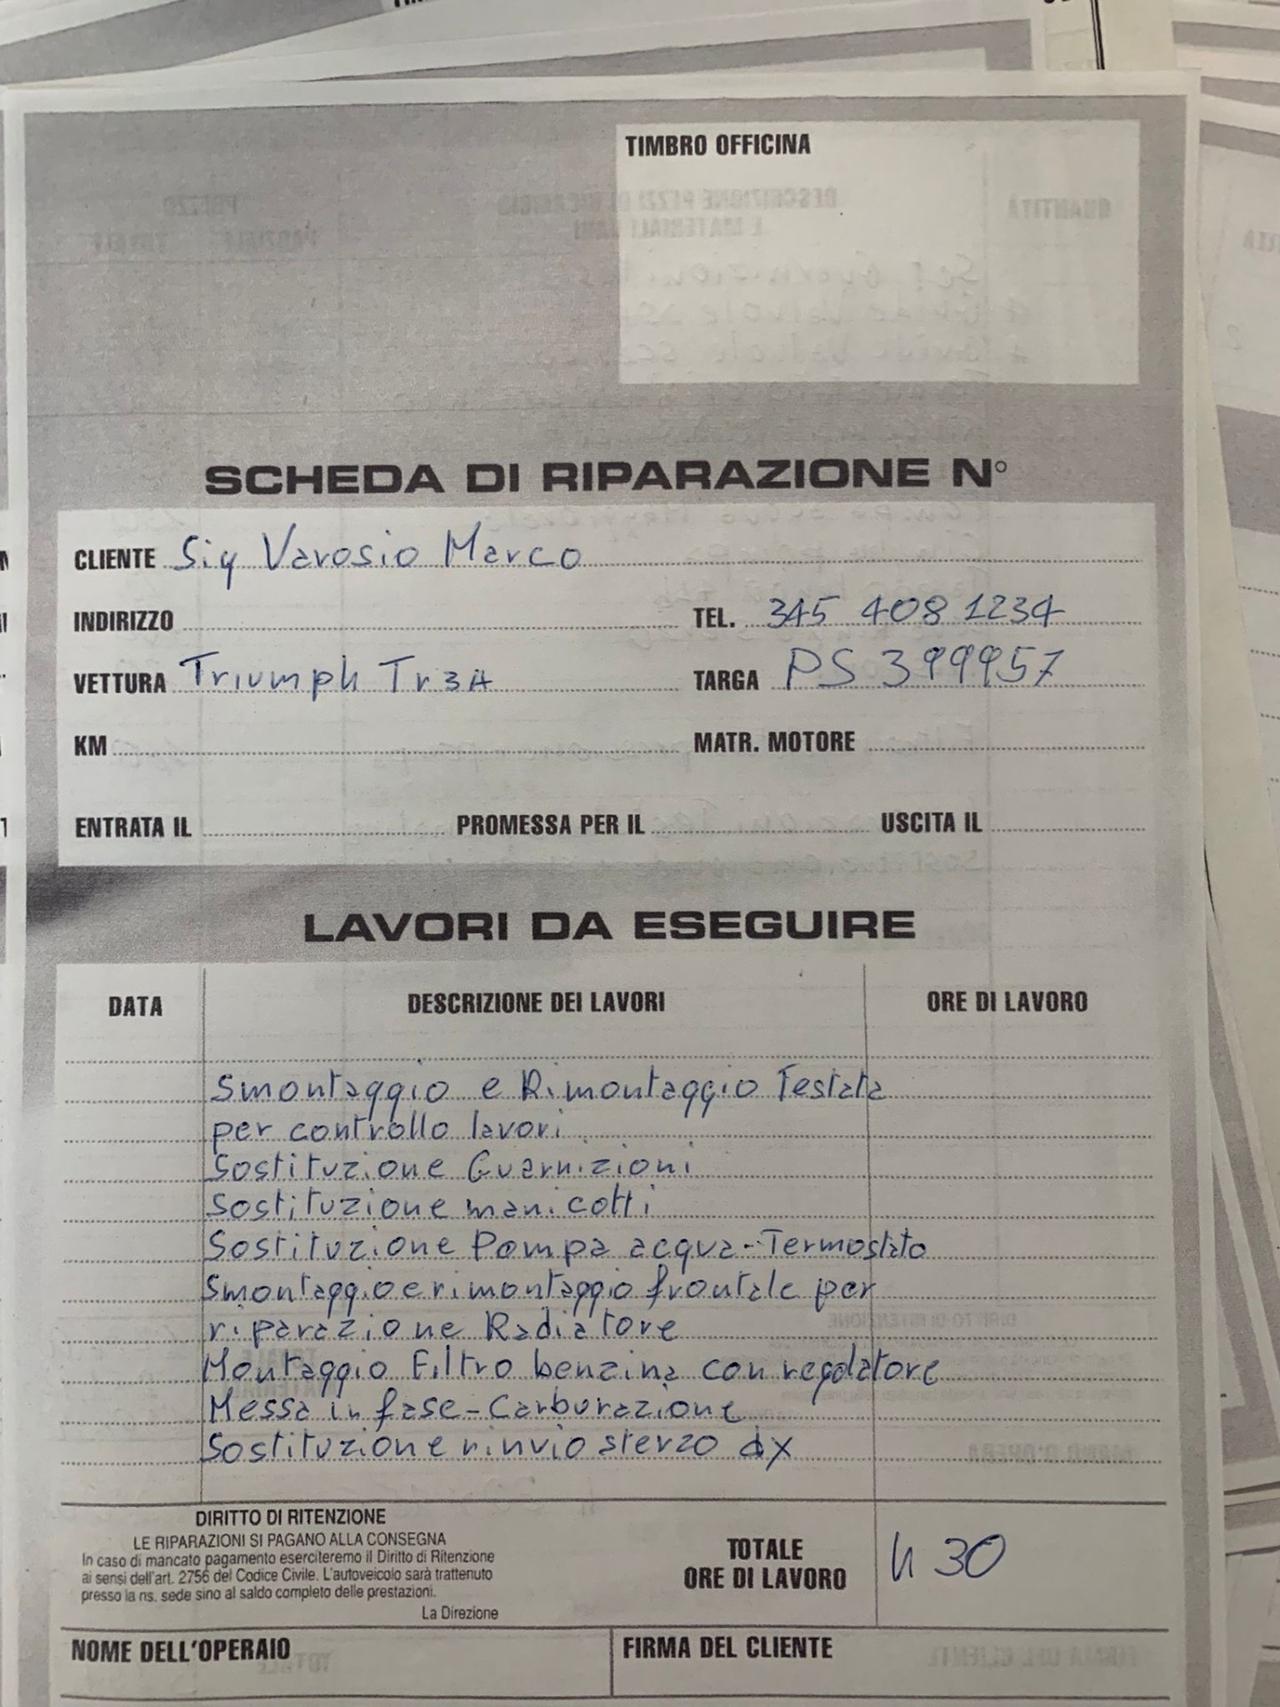 TIMBRO OFFICINA
SCHEDA DI RIPARAZIONE N°
CLIENTE Sig Varosio Marco
INDIRIZZO TEL. 345 408 1234
VETTURA Triumph Tr3A TARGA PS 399957
KM MATR. MOTORE
ENTRATA IL PROMESSA PER IL USCITA IL
LAVORI DA ESEGUIRE
DATA DESCRIZIONE DEI LAVORI ORE DI LAVORO
Smontaggio e Rimontaggio Testata
per controllo lavori
Sostituzione Guarnizioni
Sostituzione manicotti
Sostituzione Pompa acqua-Termostato
Smontaggio e rimontaggio frontale per
riparazione Radiatore
Montaggio Filtro benzina con regolatore
Messa in fase-Carburazione
Sostituzione rinvio sterzo dx
DIRITTO DI RITENZIONE
LE RIPARAZIONI SI PAGANO ALLA CONSEGNA
In caso di mancato pagamento eserciteremo il Diritto di Ritenzione
ai sensi dell'art. 2756 del Codice Civile. L'autoveicolo sarà trattenuto
presso la ns. sede sino al saldo completo delle prestazioni.
La Direzione
TOTALE
ORE DI LAVORO h 30
NOME DELL'OPERAIO FIRMA DEL CLIENTE